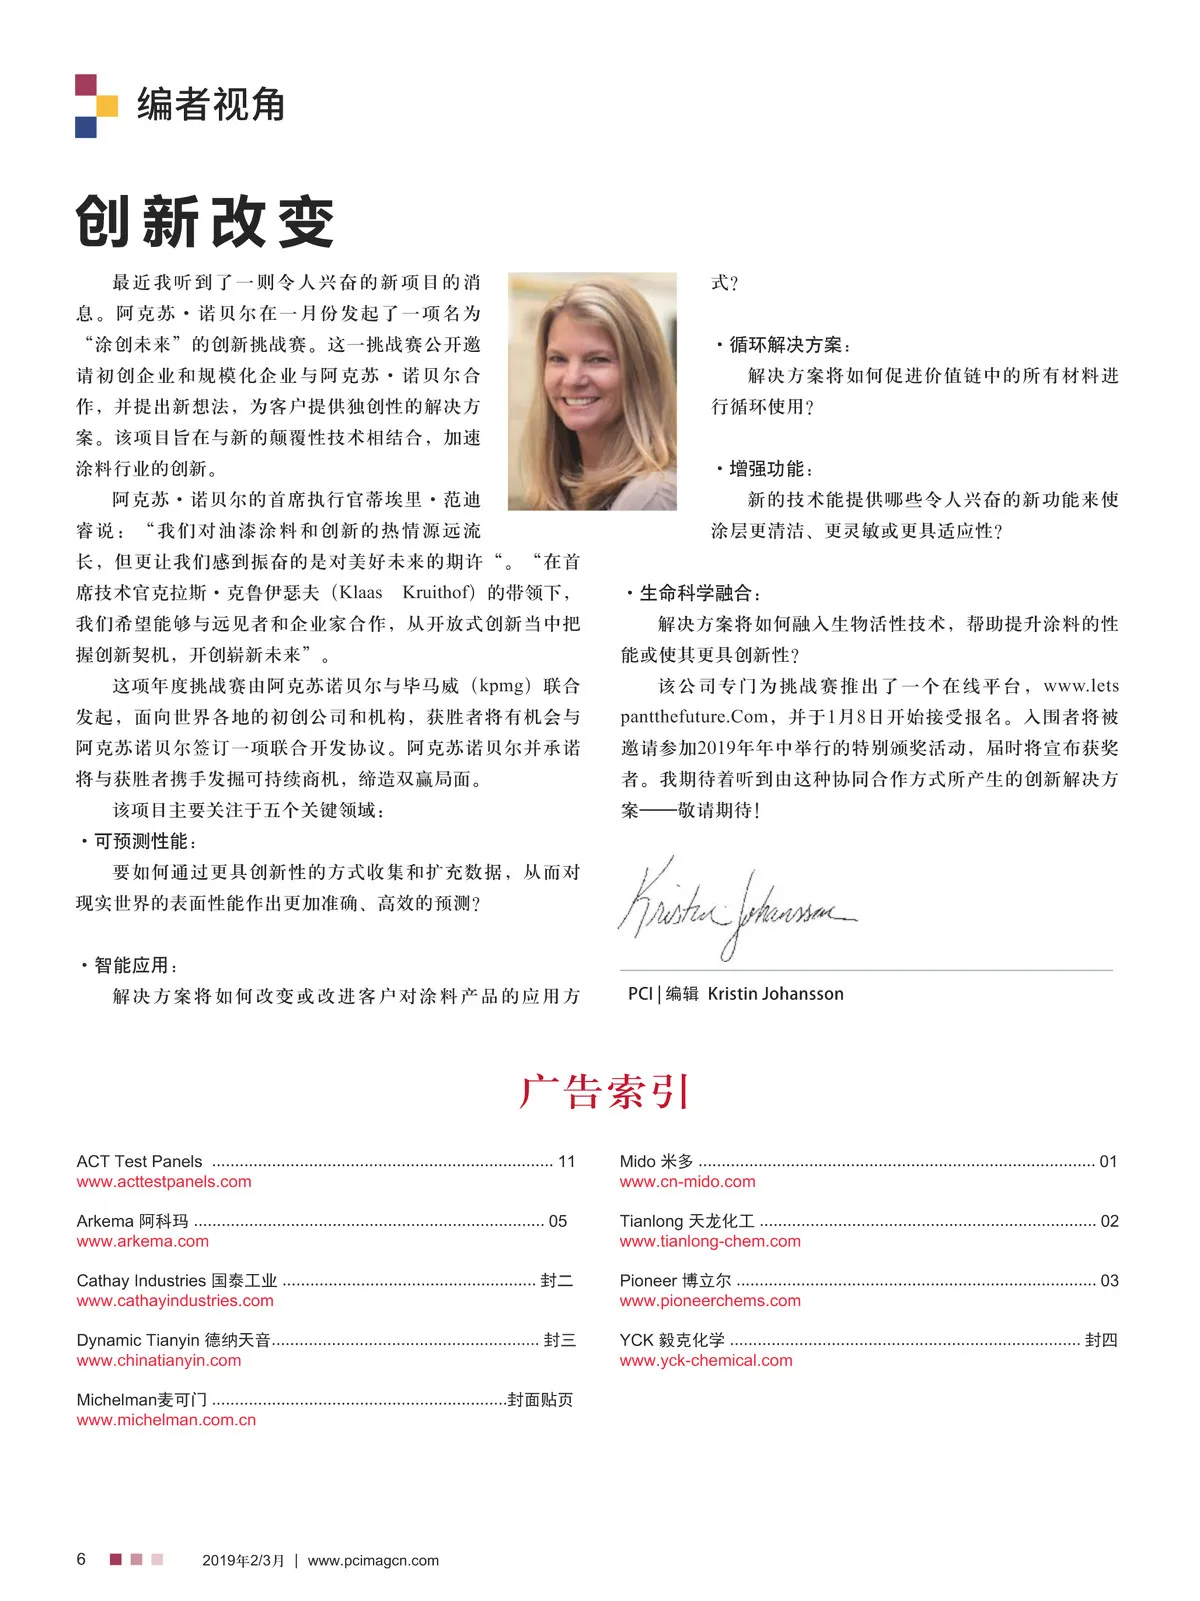 编者视角
创新改变
最近我听到了一则令人兴奋的新项目的消
息。阿克苏·诺贝尔在一月份发起了一项名为
“涂创未来”的创新挑战赛。这一挑战赛公开邀
请初创企业和规模化企业与阿克苏·诺贝尔合
作，并提出新想法，为客户提供独创性的解决方
案。该项目旨在与新的颠覆性技术相结合，加速
涂料行业的创新。
阿克苏·诺贝尔的首席执行官蒂埃里·范迪
睿说：“我们对油漆涂料和创新的热情源远流
长，但更让我们感到振奋的是对美好未来的期许“。“在首
席技术官克拉斯·克鲁伊瑟夫（Klaas Kruithof）的带领下，
我们希望能够与远见者和企业家合作，从开放式创新当中把
握创新契机，开创崭新未来”。
这项年度挑战赛由阿克苏诺贝尔与毕马威（kpmg）联合
发起，面向世界各地的初创公司和机构，获胜者将有机会与
阿克苏诺贝尔签订一项联合开发协议。阿克苏诺贝尔并承诺
将与获胜者携手发掘可持续商机，缔造双赢局面。
该项目主要关注于五个关键领域：
·可预测性能：
要如何通过更具创新性的方式收集和扩充数据，从而对
现实世界的表面性能作出更加准确、高效的预测？
·智能应用：
解决方案将如何改变或改进客户对涂料产品的应用方
式？
·循环解决方案：
解决方案将如何促进价值链中的所有材料进
行循环使用？
·增强功能：
新的技术能提供哪些令人兴奋的新功能来使
涂层更清洁、更灵敏或更具适应性？
·生命科学融合：
解决方案将如何融入生物活性技术，帮助提升涂料的性
能或使其更具创新性？
该公司专门为挑战赛推出了一个在线平台，www.lets
pantthefuture.Com，并于1月8日开始接受报名。入围者将被
邀请参加2019年年中举行的特别颁奖活动，届时将宣布获奖
者。我期待着听到由这种协同合作方式所产生的创新解决方
案——敬请期待！
Kristin Johansson
PCI | 编辑 Kristin Johansson
广告索引
ACT Test Panels .......................................................................... 11
www.acttestpanels.com
Arkema 阿科玛 ............................................................................ 05
www.arkema.com
Cathay Industries 国泰工业 ....................................................... 封二
www.cathayindustries.com
Dynamic Tianyin 德纳天音.......................................................... 封三
www.chinatianyin.com
Michelman麦可门 ................................................................封面贴页
www.michelman.com.cn
Mido 米多 ...................................................................................... 01
www.cn-mido.com
Tianlong 天龙化工 ......................................................................... 02
www.tianlong-chem.com
Pioneer 博立尔 .............................................................................. 03
www.pioneerchems.com
YCK 毅克化学 ............................................................................ 封四
www.yck-chemical.com
6 2019年2/3月 | www.pcimagcn.com